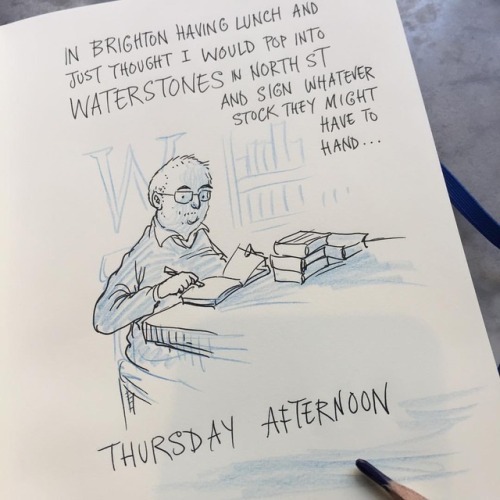 IN BRIGHTON HAVING LUNCH AND
JUST THOUGHT I WOULD POP INTO
WATERSTONES IN NORTH ST
AND SIGN WHATEVER
STOCK THEY MIGHT
HAVE TO
HAND...
W
THURSDAY AFTERNOON